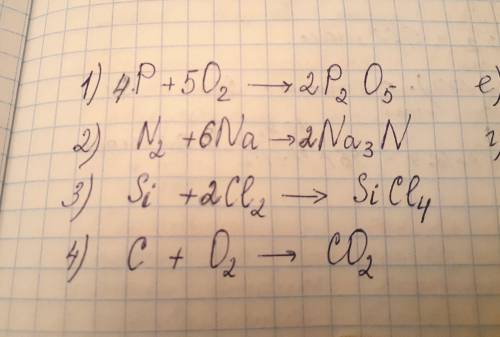 1) 4P + 5O₂ → 2P₂O₅ e)
2) N₂ + 6Na → 2Na₃N
3) Si + 2Cl₂ → SiCl₄
4) C + O₂ → CO₂